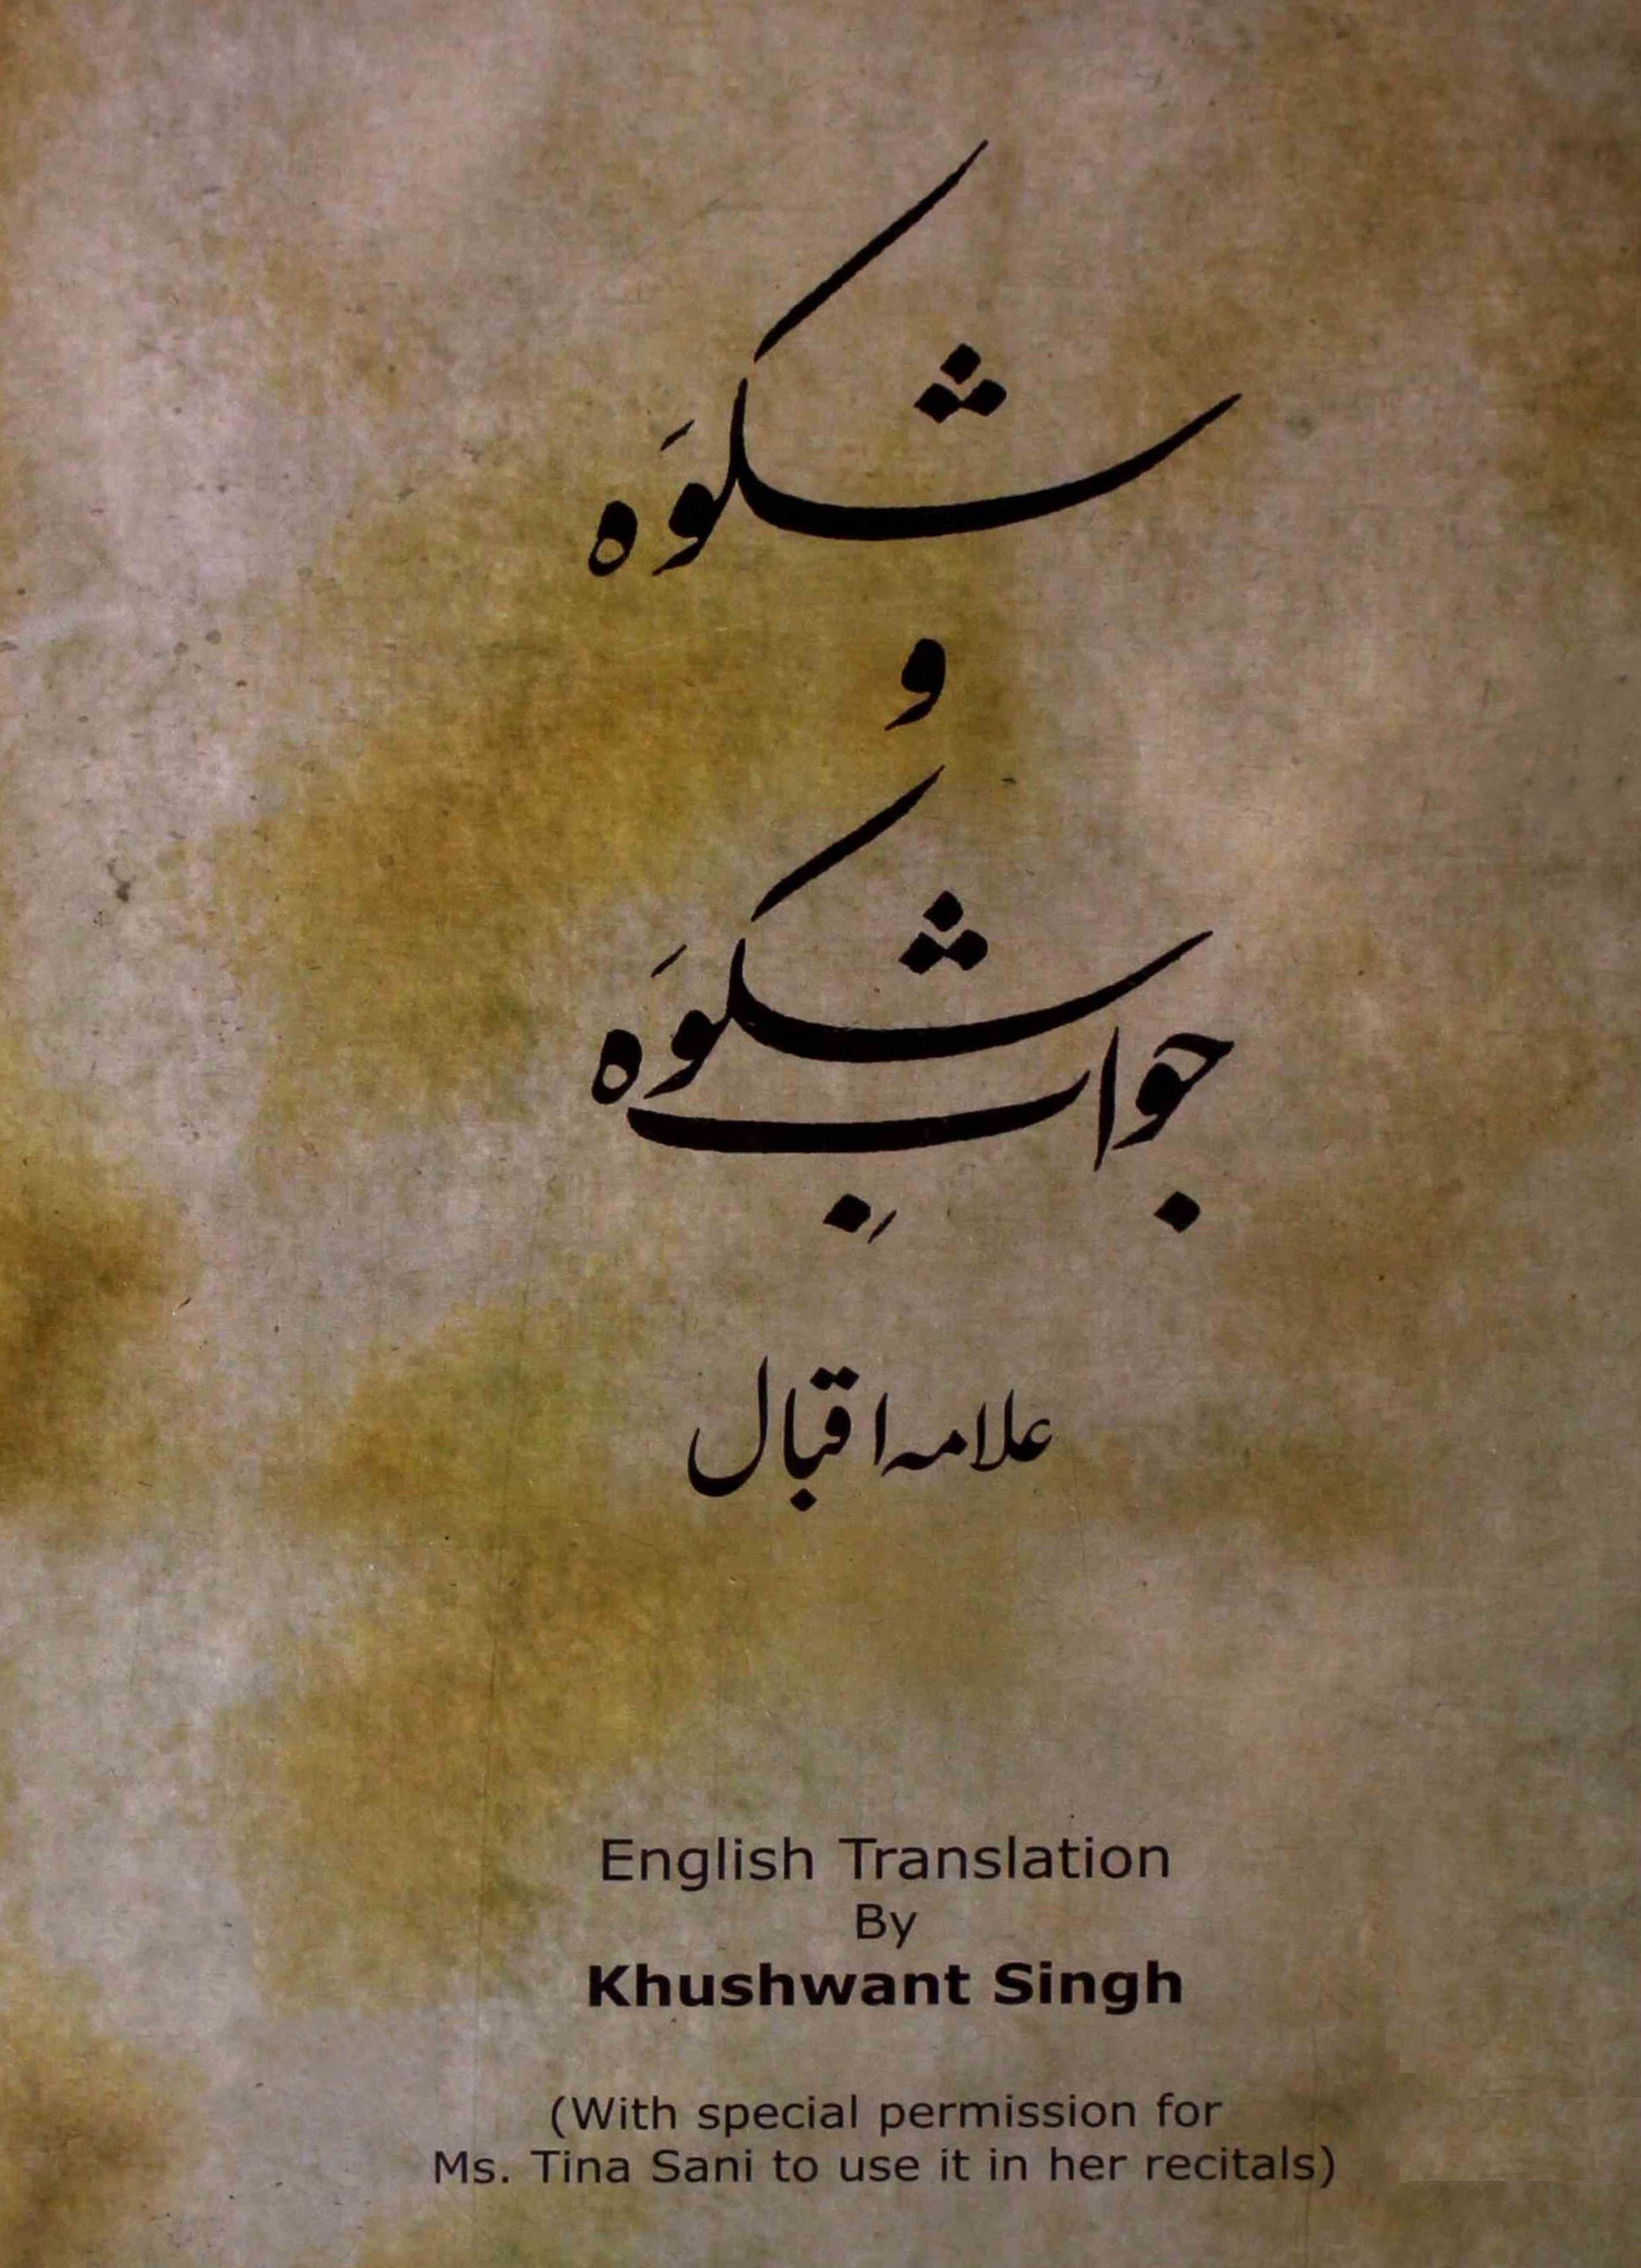 شکوَہ
و
جوابِ شکوَہ
علامہ اقبال
English Translation
By
Khushwant Singh
(With special permission for
Ms. Tina Sani to use it in her recitals)